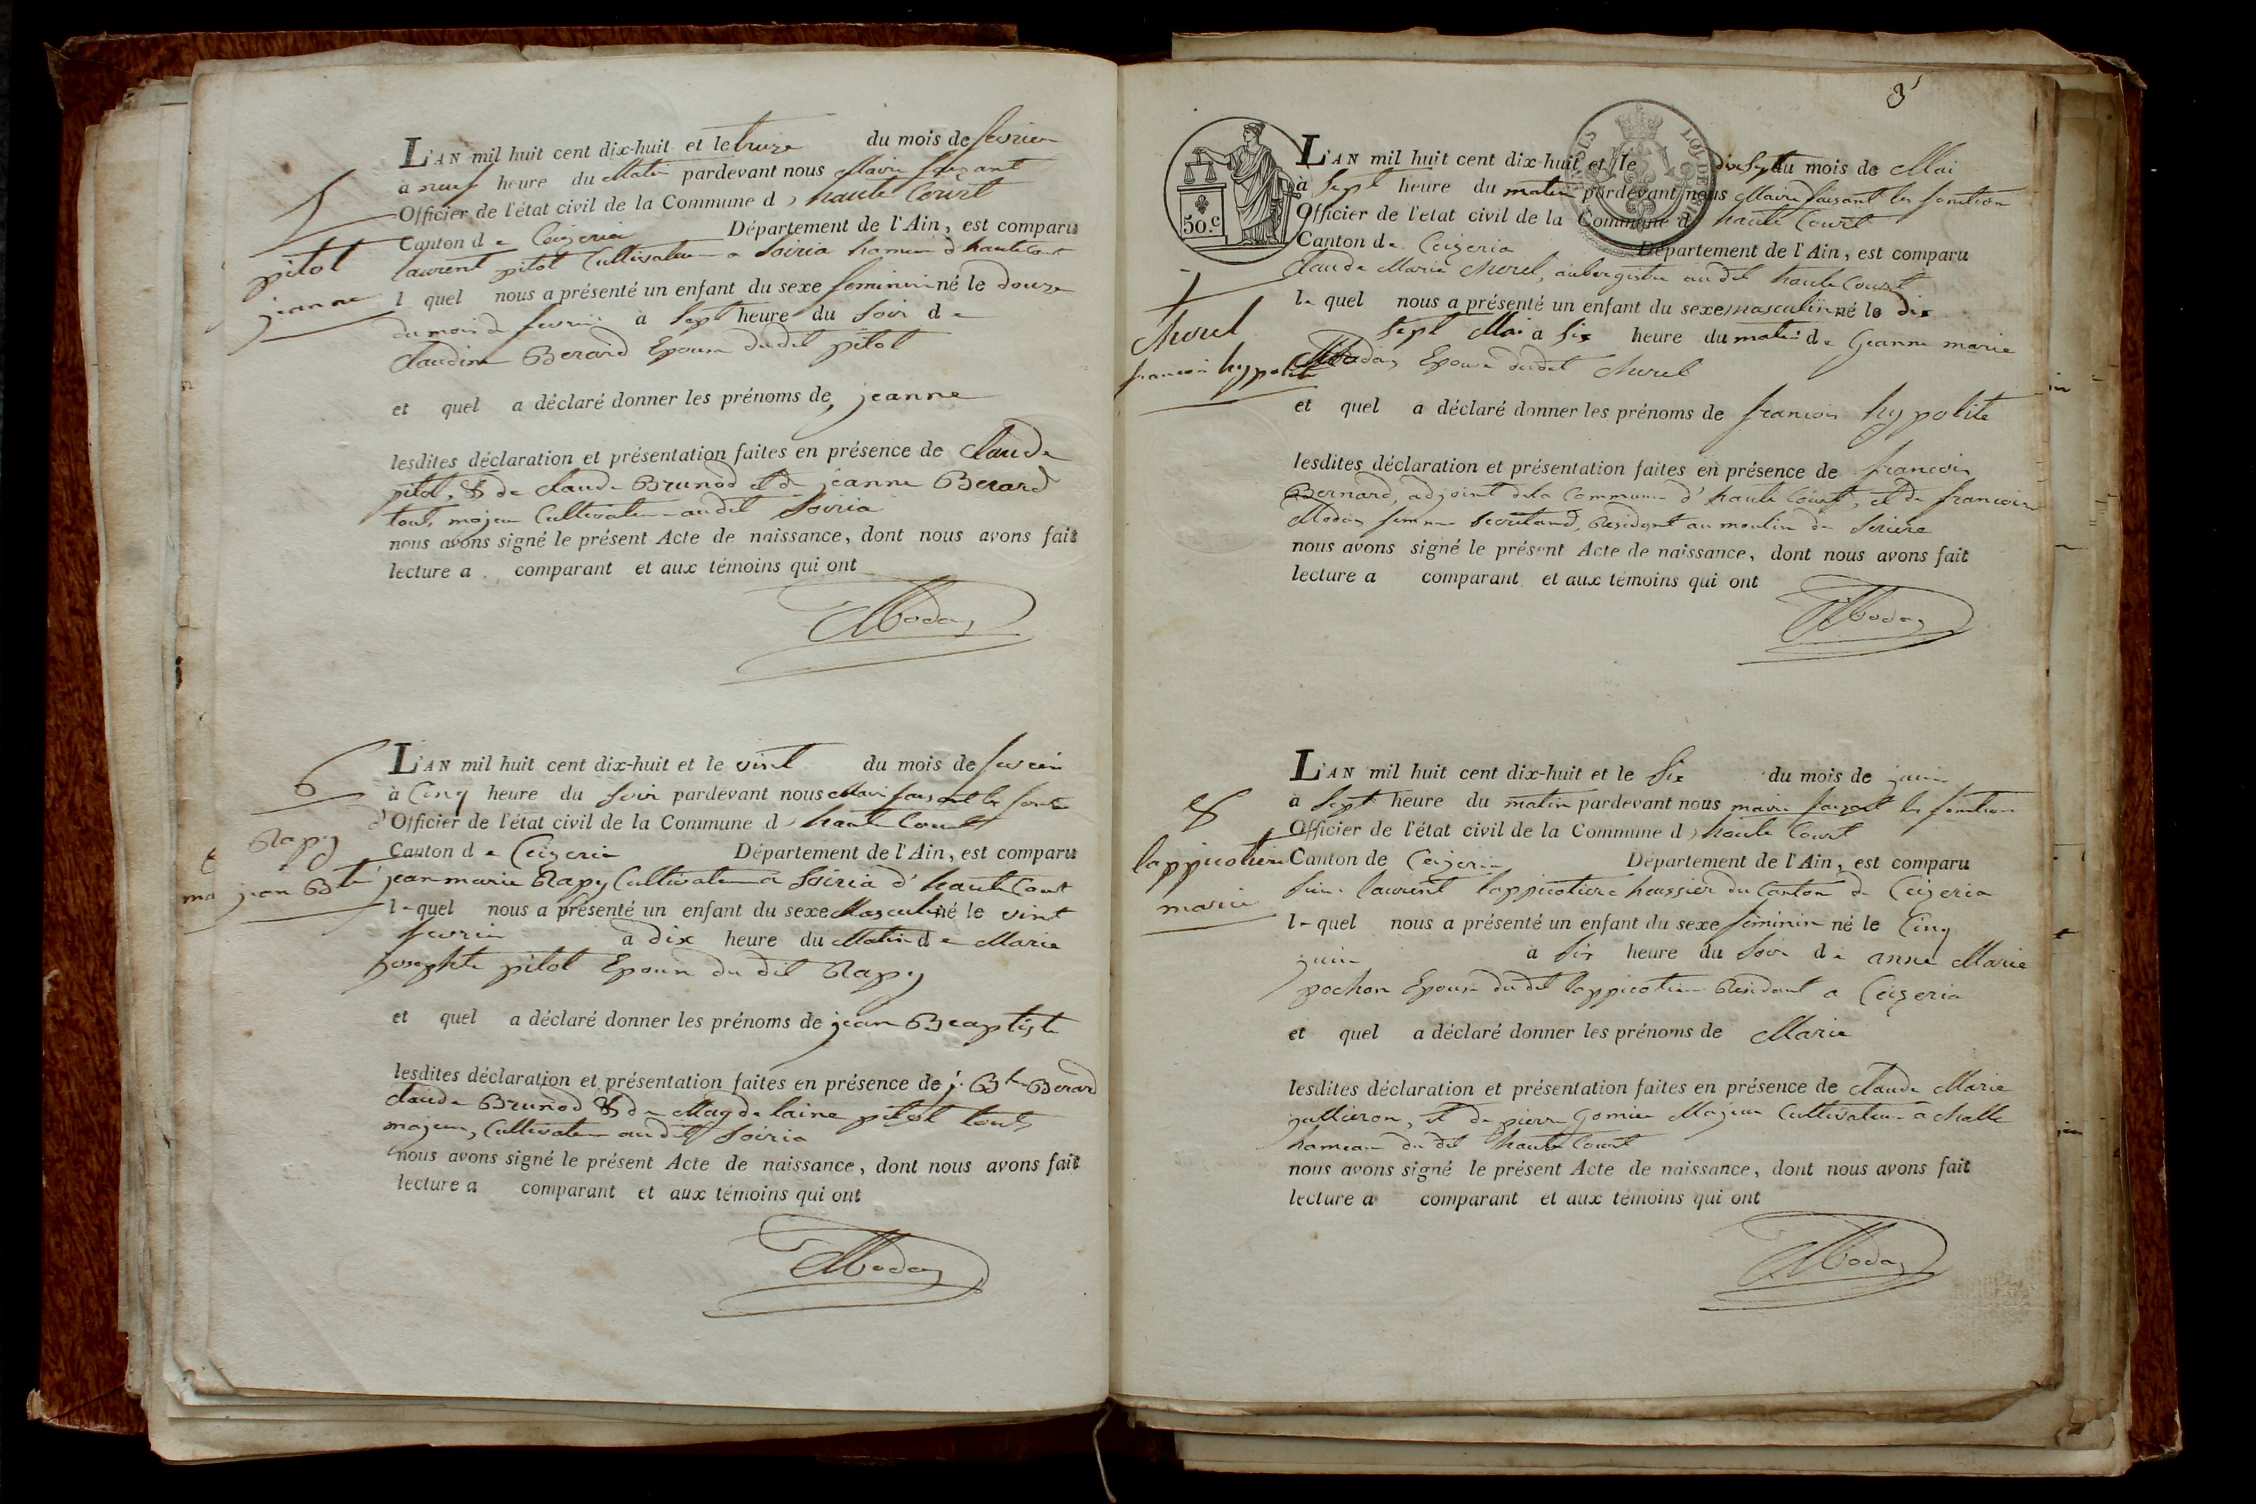 5
pitot
jeanne
L'AN mil huit cent dix-huit et le treize du mois de fevrier
à neuf heure du Matin pardevant nous Maire faisant
Officier de l'état civil de la Commune d haute Court
Canton de Ceizeria Département de l'Ain, est comparu
laurent pitot Cultivateur a Soiria hameau d haute Court
l quel nous a présenté un enfant du sexe feminin né le douze
du mois de fevrier à Sept heure du Soir de
Claudine Berard Epouse dudit pitot
et quel a déclaré donner les prénoms de jeanne
lesdites déclaration et présentation faites en présence de Claude
pitot, & de claude Brunod et de jeanne Berard
tous majeur Cultivateur audit Soiria
nous avons signé le présent Acte de naissance, dont nous avons fait
lecture a comparant et aux témoins qui ont
Moday
6
Rapy
jean Bte
L'AN mil huit cent dix-huit et le vint du mois de fevrier
à Cinq heure du Soir pardevant nous Maire faisant les fonction
d'Officier de l'état civil de la Commune d haute Court
Canton de Ceizeria Département de l'Ain, est comparu
jean marie Rapy Cultivateur a Soiria d' haute Court
le quel nous a présenté un enfant du sexe Masculin né le vint
fevrier à dix heure du Matin de Marie
josephte pitot Epouse du dit Rapy
et quel a déclaré donner les prénoms de jean Beaptiste
lesdites déclaration et présentation faites en présence de j. Bte Berard
Claude Brunod & de Magdelaine pitot tous
majeur, Cultivateur audit Soiria
nous avons signé le présent Acte de naissance, dont nous avons fait
lecture a comparant et aux témoins qui ont
Moday
3
50 c.
LOI DE
7
Morel
francois hypolite
L'AN mil huit cent dix-huit et le dix Sept du mois de Mai
à Sept heure du matin pardevant nous Maire faisant les fonction
Officier de l'état civil de la Commune d haute Court
Canton de Ceizeria Département de l'Ain, est comparu
Claude Marie Morel, aubergiste audit haute Court
le quel nous a présenté un enfant du sexe masculin né le dix
Sept Mai à Six heure du matin de Jeanne marie
Moday Epouse dudit Morel
et quel a déclaré donner les prénoms de francois hypolite
lesdites déclaration et présentation faites en présence de francois
Bernard, adjoint de la Commune d' haute Court, et de francoise
Moday femme Residant au moulin de
nous avons signé le présent Acte de naissance, dont nous avons fait
lecture a comparant et aux témoins qui ont
Moday
8
lappicotiere
marie
L'AN mil huit cent dix-huit et le Six du mois de juin
à Sept heure du matin pardevant nous maire faisant les fonction
Officier de l'état civil de la Commune d haute Court
Canton de Ceizeria Département de l'Ain, est comparu
Sieur laurent lappicotiere huissier du Canton de Ceizeria
le quel nous a présenté un enfant du sexe feminin né le Cinq
juin à Six heure du Soir de anne Marie
pochon Epouse dudit lappicotiere Residant a Ceizeria
et quel a déclaré donner les prénoms de Marie
lesdites déclaration et présentation faites en présence de Claude Marie
jullieron, et de pierre Gomier Majeur Cultivateur a Challe
hameau du dit haute Court
nous avons signé le présent Acte de naissance, dont nous avons fait
lecture a comparant et aux témoins qui ont
Moday